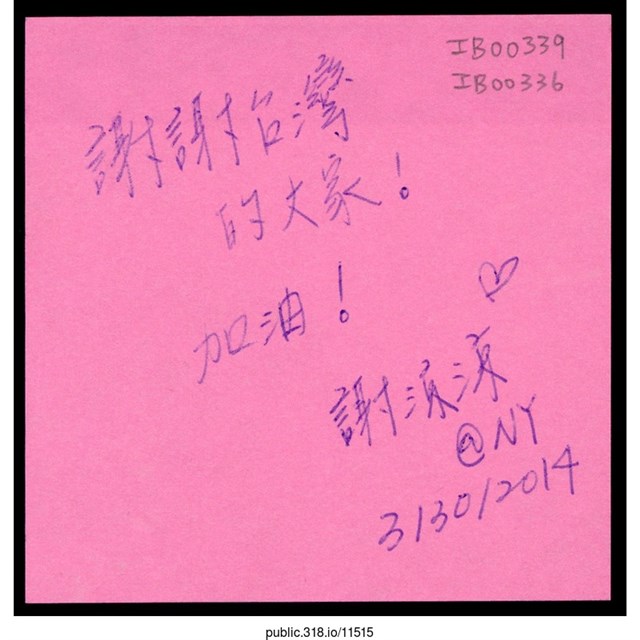 IB00339
IB00336
謝謝台灣
的大家！
加油！
♡
謝涼涼
@NY
3/30/2014
public.318.io/11515